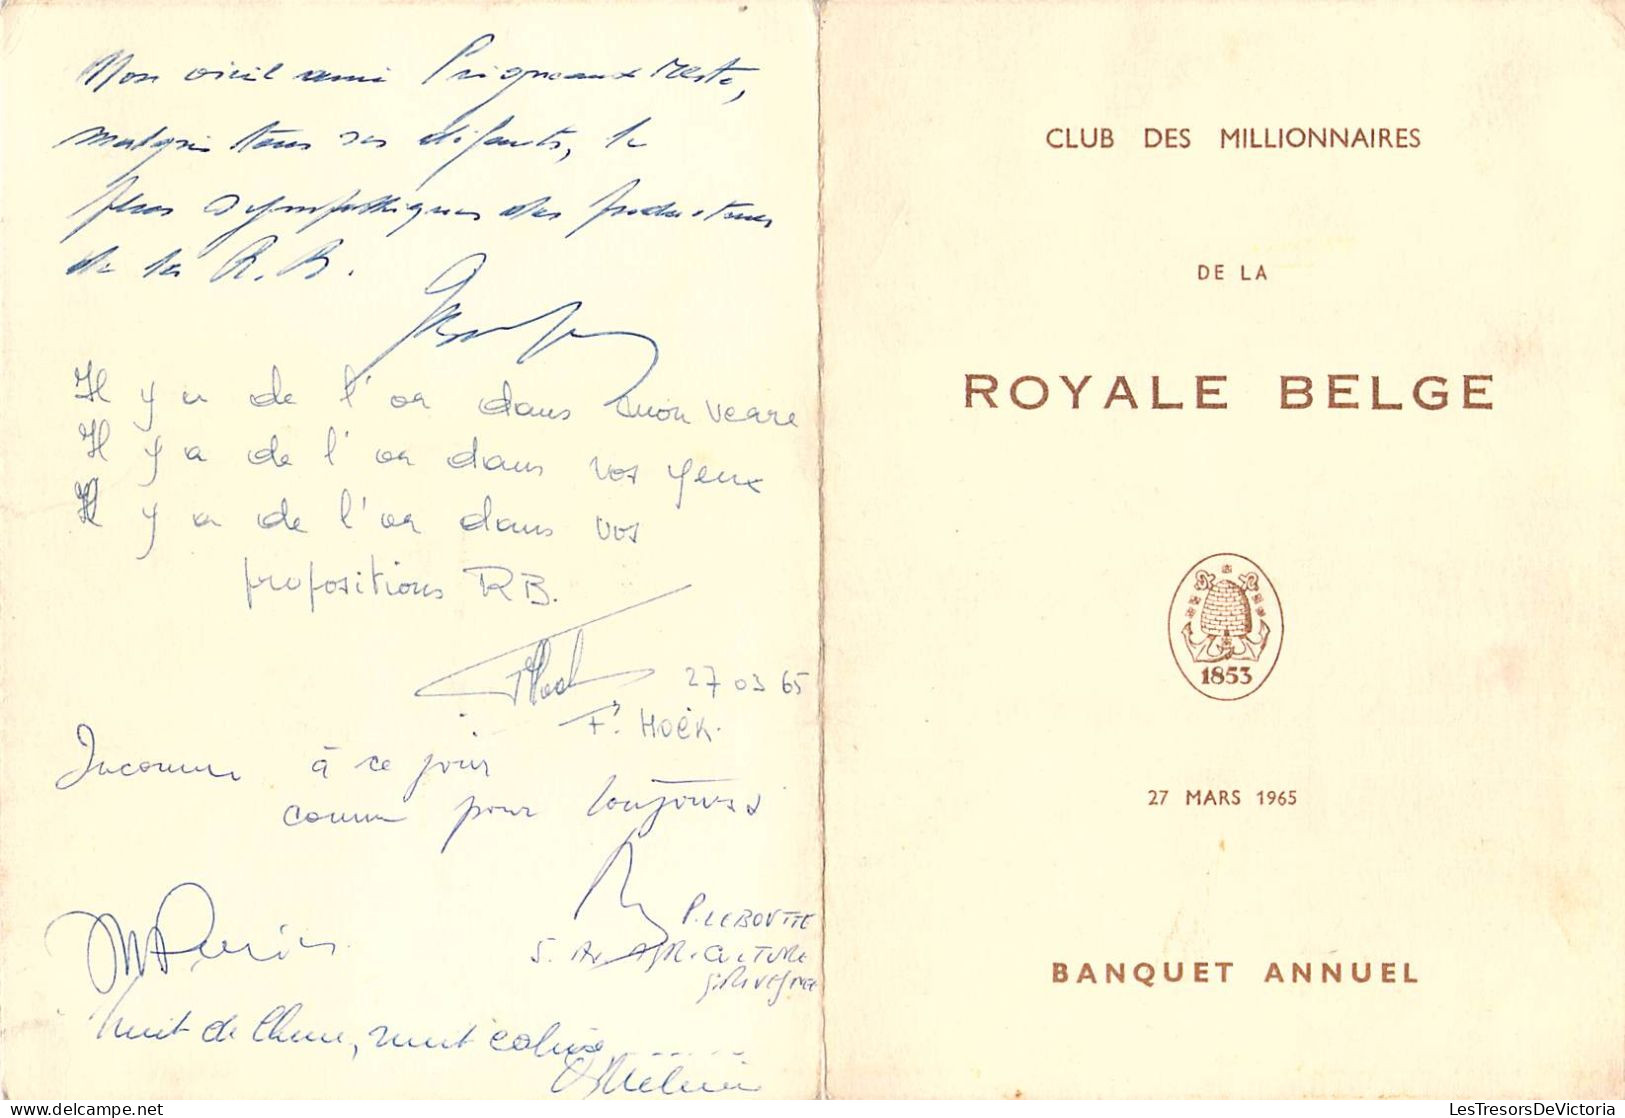 Mon vieil ami Prigneaux reste,
malgré tous ses défauts, le
plus sympathique des producteurs
de la R.B.
Il y a de l'or dans mon verre
Il y a de l'or dans vos yeux
Il y a de l'or dans vos
propositions RB.
27 03 65
F. HOËK.
Inconnu à ce jour
comme pour toujours
P. LEBOUTTE
5. AGRICULTURE
GRIVEGNEE
Nuit de Chine, nuit caline......
CLUB DES MILLIONNAIRES
DE LA
ROYALE BELGE
1853
27 MARS 1965
BANQUET ANNUEL
LesTresorsDeVictoria